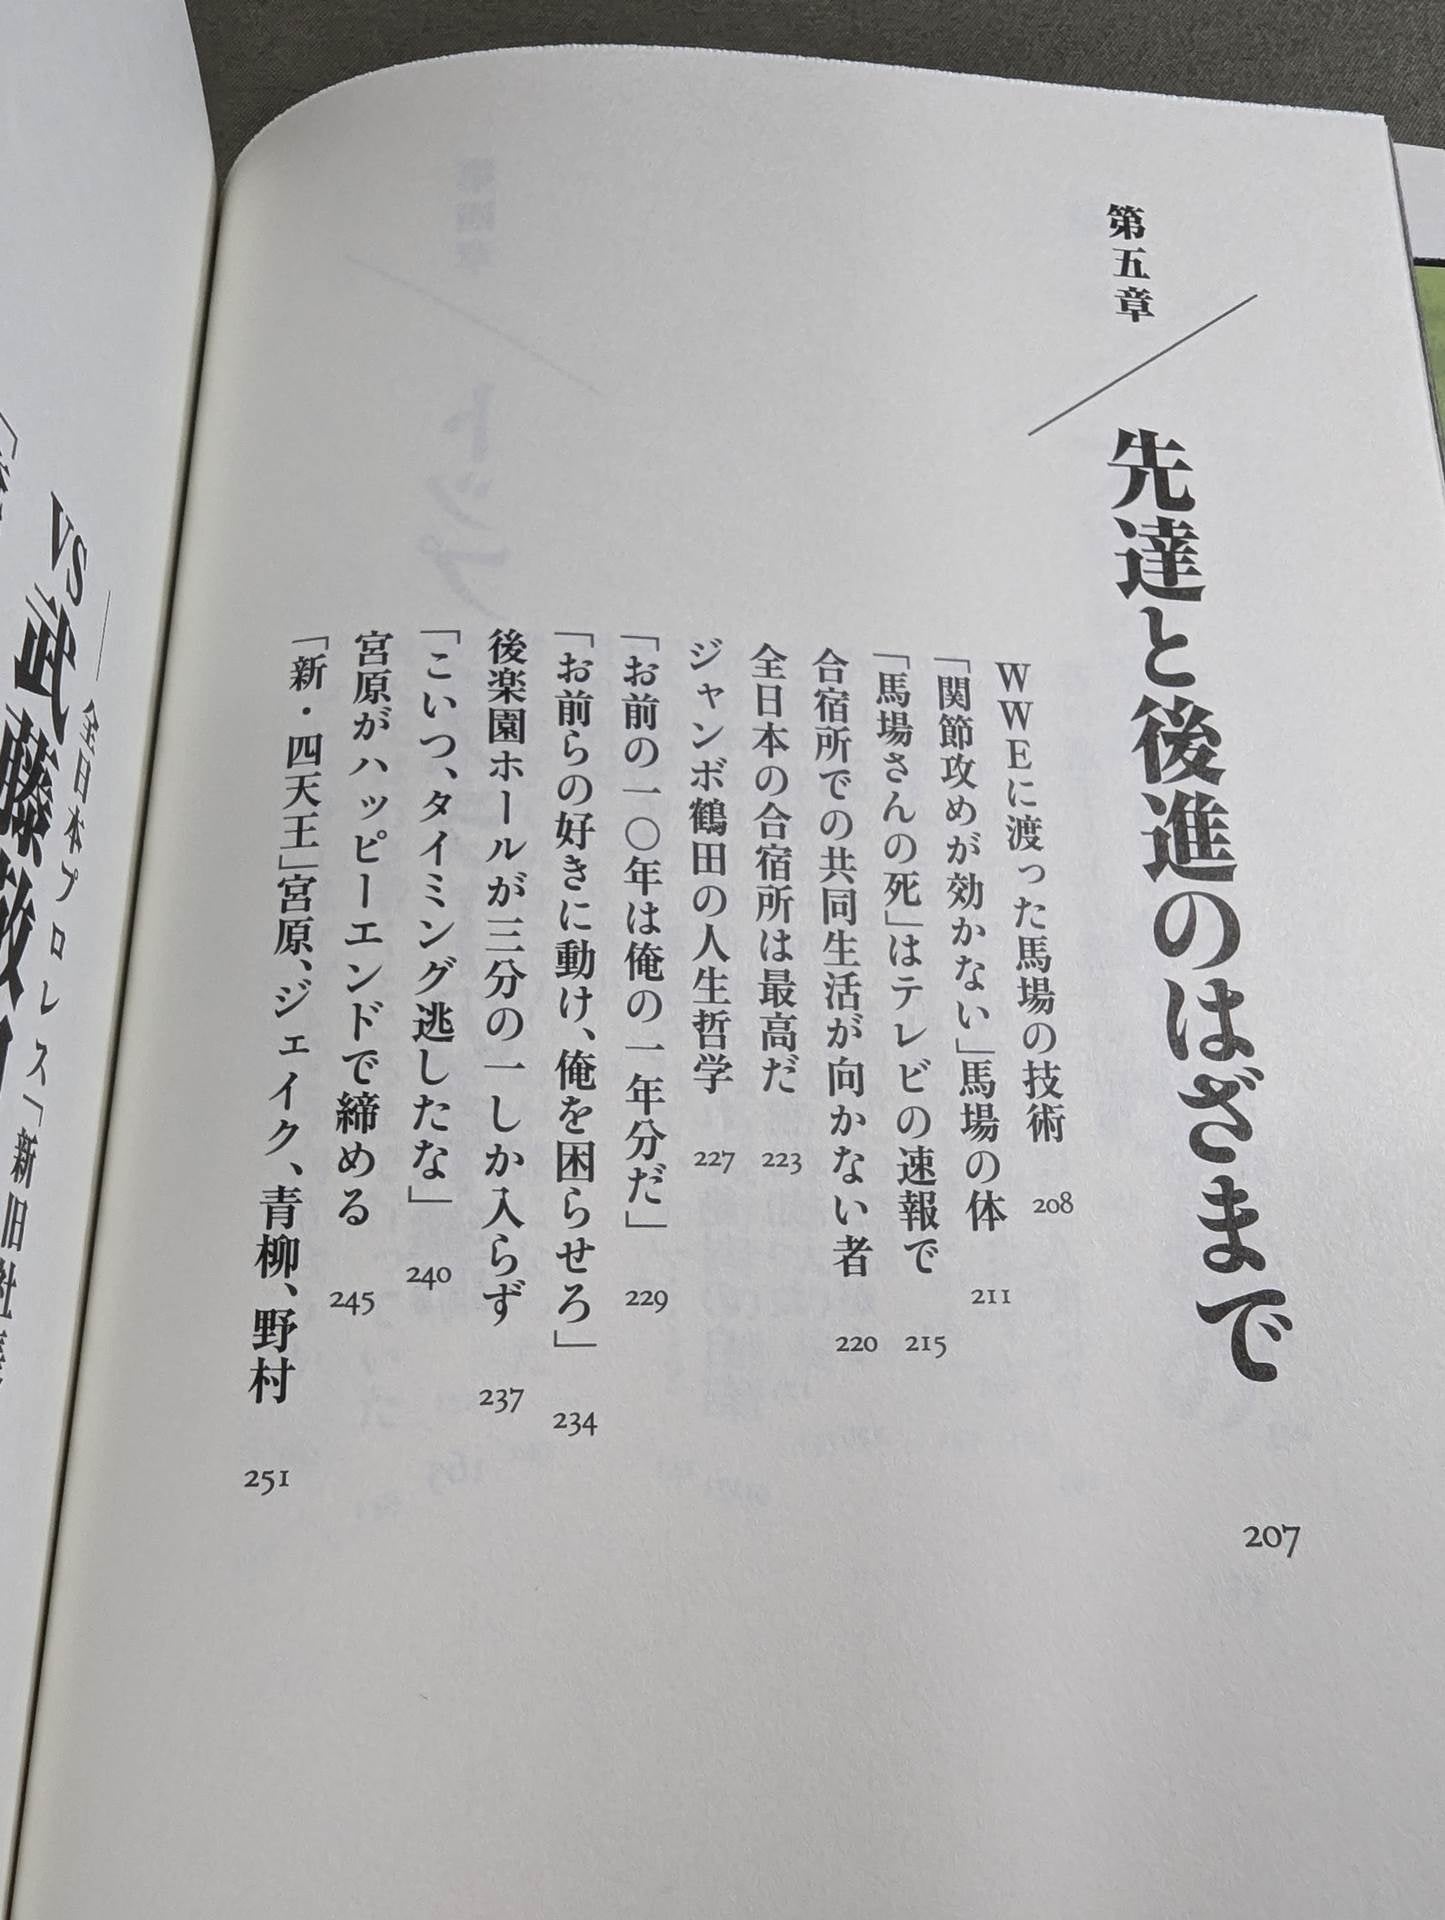 第五章
先達と後進のはざまで 207
WWEに渡った馬場の技術 208
「関節攻めが効かない」馬場の体 211
「馬場さんの死」はテレビの速報で 215
合宿所での共同生活が向かない者 220
全日本の合宿所は最高だ 223
ジャンボ鶴田の人生哲学 227
「お前の一〇年は俺の一年分だ」 229
「お前らの好きに動け、俺を困らせろ」 234
後楽園ホールが三分の一しか入らず 237
「こいつ、タイミング逃したな」 240
宮原がハッピーエンドで締める 245
「新・四天王」宮原、ジェイク、青柳、野村 251
全日本プロレス「新旧社長
VS武藤敬